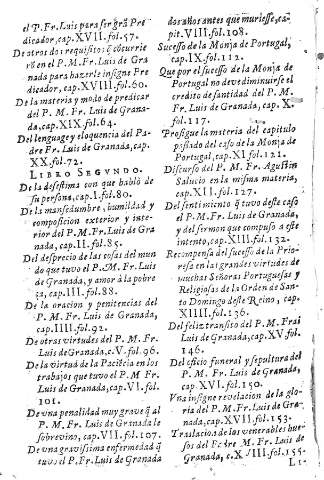 el P. Fr. Luis para ser grã Pre
dicador, cap. XVII. fol. 57.
De otros dos requisitos q̃ cõcurrie
rõ en el P. M. Fr. Luis de Gra
nada para hazerle insigne Pre
dicador, cap. XVIII. fol. 60.
De la materia y modo de predicar
del P. M. Fr. Luis de Grana-
da, cap. XIX. fol. 64.
Del lenguage y eloquencia del Pa
dre Fr. Luis de Granada, cap.
XX. fo. 72.
LIBRO SEGVNDO.
De la desestima con que hablò de
su persona, cap. I. fol. 80.
De la mansedumbre, humildad y
composicion exterior y inte-
rior del P. M. Fr. Luis de Gra
nada, cap. II. fol. 85.
Del desprecio de las cosas del mun
do que tuvo el P. M. Fr. Luis
de Granada, y amor à la pobre
za, cap. III. fol. 88.
De la oracion y penitencias del
P. M. Fr. Luis de Granada,
cap. IIII. fol. 92.
De otras virtudes del P. M. Fr.
Luis de Granada, c. V. fol. 96.
De la virtud de la Paciẽcia en los
trabajos que tuvo el P. M Fr.
Luis de Granada, cap. VI. fol.
101.
De vna penalidad muy grave q̃ al
P. M. Fr. Luis de Granada le
sobrevino, cap. VII. fol. 107.
De vna gravissima enfermedad q̃
tuvo el P. Fr. Luis de Granada
dos años antes que muriesse, ca-
pit. VIII. fol. 108.
Sucesso de la Monja de Portugal,
cap. IX. fol. 112.
Que por el sucesso de la Monja de
Portugal no deve diminuirse el
credito de santidad del P. M.
Fr. Luis de Granada, cap. X.
fol. 117.
Prosigue la materia del capitulo
passado del caso de la Monja de
Portugal, cap. XI. fol. 121.
Discurso del P. M. Fr. Agustin
Salucio en la misma materia,
cap. XII. fol. 127.
Del sentimiẽto q̃ tuvo deste caso
el P. M. Fr. Luis de Granada,
y del sermon que compuso a este
intento, cap. XIII. fol. 132.
Recompensa del sucesso de la Prio-
resa en las grandes virtudes de
muchas Señoras Portuguesas y
Religiosas de la Orden de San-
to Domingo deste Reino, cap.
XIIII. fol. 136.
Del feliz transito del P. M. Frai
Luis de Granada, cap. XV. fol.
146.
Del oficio funeral y sepultura del
P. M. Fr. Luis de Granada,
cap. XVI. fol. 150.
Vna insigne revelacion de la glo-
ria del P. M. Fr. Luis de Gra-
nada, cap. XVII. fol. 153.
Traslacion de los venerables hue-
sos del Padre M. Fr. Luis de
Granada, c. XVIII. fol. 155.